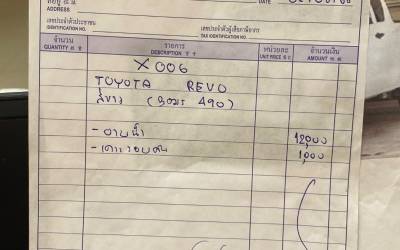 ที่อยู่
ADDRESS
เลขประจำตัวประชาชน
IDENTIFICATION NO.
เลขประจำตัวผู้เสียภาษีอากร
TAX IDENTIFICATION NO.
จำนวน
QUANTITY
รายการ
DESCRIPTION
หน่วยละ
UNIT PRICE
จำนวนเงิน
AMOUNT
X006
TOYOTA REVO
สีขาว 490)
12,000
1,000